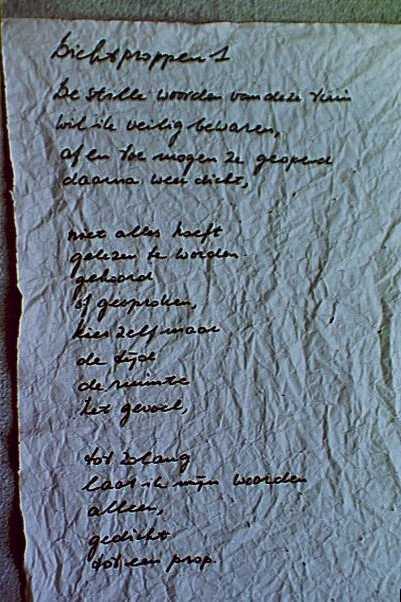 Dichtproppen 1
De stille woorden van deze tuin
wil ik veilig bewaren,
af en toe mogen ze geopend
daarna weer dicht,
niet alles hoeft
gelezen te worden
gehoord
of gesproken,
kies zelf maar
de tijd
de ruimte
het gevoel,
tot zolang
laat ik mijn woorden
alleen,
gedicht
tot een prop.